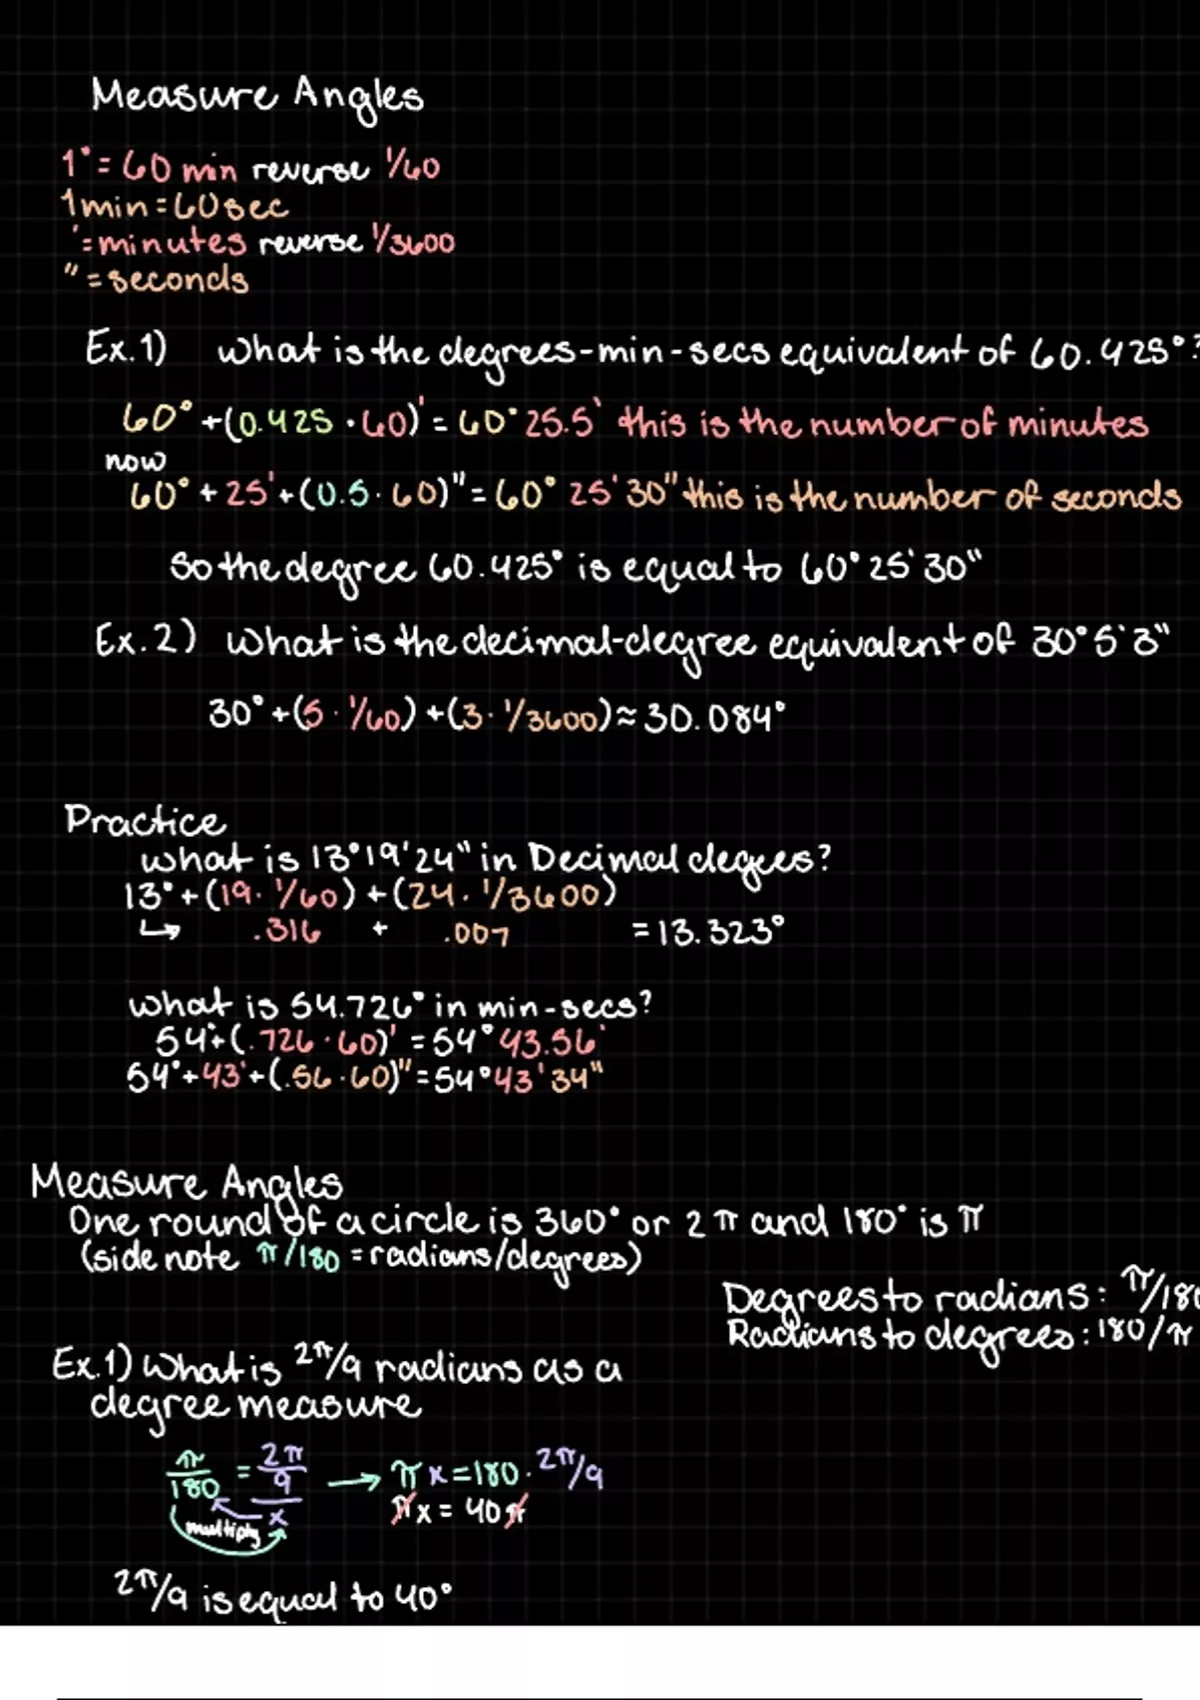 Measure Angles
1° = 60 min reverse 1/60
1 min = 60 sec
' = minutes reverse 1/3600
" = seconds
Ex. 1) What is the degrees-min-secs equivalent of 60.425°?
60° + (0.425 · 60)' = 60° 25.5' this is the number of minutes
now
60° + 25' + (0.5 · 60)" = 60° 25' 30" this is the number of seconds
So the degree 60.425° is equal to 60° 25' 30"
Ex. 2) What is the decimal-degree equivalent of 30° 5' 3"
30° + (5 · 1/60) + (3 · 1/3600) ≈ 30.084°
Practice
what is 13° 19' 24" in Decimal degees?
13° + (19 · 1/60) + (24 · 1/3600)
↳ .316 + .007 = 13.323°
what is 54.726° in min-secs?
54° + (.726 · 60)' = 54° 43.56'
54° + 43' + (.56 · 60)" = 54° 43' 34"
Measure Angles
One round of a circle is 360° or 2π and 180° is π
(side note π/180 = radians/degrees)
Degrees to radians: π/180
Radians to degrees: 180/π
Ex. 1) What is 2π/9 radians as a
degree measure
π/180 = 2π/9/x → πx = 180 · 2π/9
multiply πx = 40π
2π/9 is equal to 40°